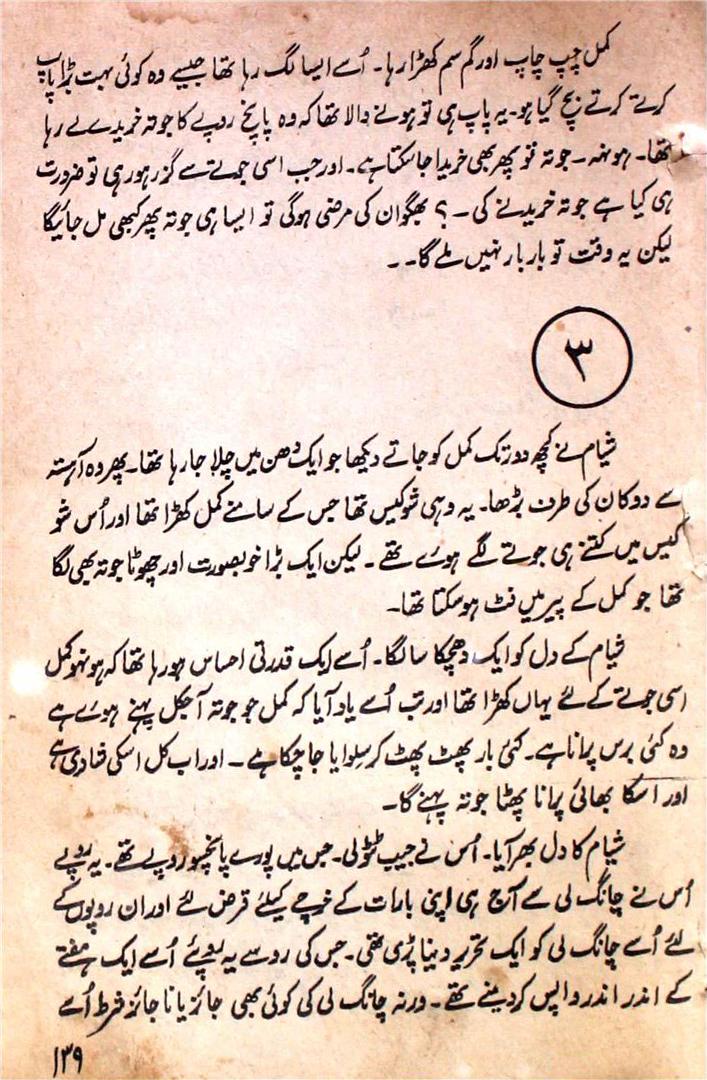 کمل چپ چاپ اور گم سم کھڑا رہا۔ اُسے ایسا لگ رہا تھا جیسے وہ کوئی بہت بڑا پاپ
کرتے کرتے بچ گیا ہو۔ یہ پاپ ہی تو ہونے والا تھا کہ وہ پانچ روپے کا جوتہ خریدے لے رہا
تھا۔ ہونہہ۔ جوتہ تو پھر بھی خریدا جا سکتا ہے۔ اور جب اسی جوتے سے گزر ہو رہی تو ضرورت
ہی کیا ہے جوتہ خریدنے کی۔ ؟ بھگوان کی مرضی ہوگی تو ایسا ہی جوتہ پھر کبھی مل جائیگا
لیکن یہ وقت تو بار بار نہیں ملے گا۔۔
۳
شیام نے کچھ دور تک کمل کو جاتے دیکھا جو ایک دھن میں چلا جا رہا تھا۔ پھر وہ آہستہ
سے دوکان کی طرف بڑھا۔ یہ وہی شوکیس تھا جس کے سامنے کمل کھڑا تھا اور اُس شو
کیس میں کتنے ہی جوتے لگے ہوئے تھے۔ لیکن ایک بڑا خوبصورت اور چھوٹا جوتہ بھی لگا
تھا جو کمل کے پیر میں فٹ ہو سکتا تھا۔
شیام کے دل کو ایک دھچکا سا لگا۔ اُسے ایک قدرتی احساس ہو رہا تھا کہ ہو نہو کمل
اسی جوتے کے لئے یہاں کھڑا تھا اور تب اُسے یاد آیا کہ کمل جو جوتہ آجکل پہنے ہوئے ہے
وہ کئی برس پرانا ہے۔ کئی بار پھٹ پھٹ کر سلوایا جا چکا ہے۔ اور اب کل اسکی شادی ہے
اور اسکا بھائی پرانا پھٹا جوتہ پہنے گا۔
شیام کا دل بھر آیا۔ اُس نے جیب ٹٹولی۔ جس میں پورے پانچسو روپے تھے۔ یہ روپے
اُس نے چانگ لی سے آج ہی اپنی بارات کے خرچے کیلئے قرض لئے اور ان روپوں کے
لئے اُسے چانگ لی کو ایک تحریر دینا پڑی تھی۔ جس کی رو سے یہ روپئے اُسے ایک ہفتے
کے اندر اندر واپس کر دینے تھے۔ ورنہ چانگ لی کی کوئی بھی جائز یا ناجائز شرط اُسے
۱۳۹